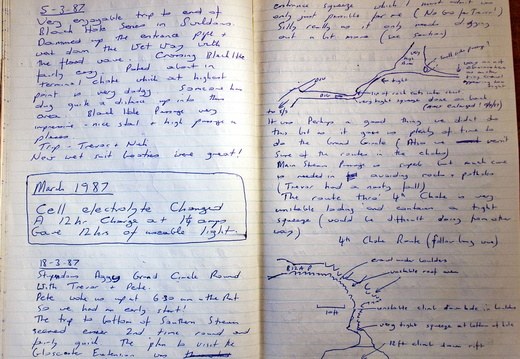 5-3-87
Very enjoyable trip to end of
Black Hole Series in Swildons.
Dammed up the entrance pipe +
went down the Wet Way with
the flood wave. Crossing Black Hole
fairly easy. Poked about in
Terminal choke which at highest
point is very dodgy. Someone has
dug quite a distance up into this
area. Black Hole Passage very
impressive - nice stal + high passage in
places
Trip - Trevor + Nick
New wet suit booties were great!
March 1987
Cell electrolyte Changed
A 12hr Charge at 1¼ amps
Gave 12hrs of useable light.
18-3-87
Stupendous Aggy Grand Circle Round
With Trevor + Pete.
Pete woke us up at 6-30 am
So we had an early start!
The trip to bottom of Southern Stream
seemed easier 2nd time round and
fairly quick. The plan to visit the
Gloucester Extension was
entrance squeeze which I must admit was
only just possible for me (No Go for Trevor!)
Silly really as it only needs digging
out a bit more (see section)
tight
very tight squeeze down on back
It was perhaps a good thing we didn't do
this bit as it gave us plenty of time to
do the Grand Circle (Also we weren't
sure of the route in the choke)
Main Stream Passage is superb but much care
is needed in avoiding rocks + potholes
(Trevor had a nasty fall)
The route thro' 4th Choke is very
unstable looking and contains a tight
squeeze (would be difficult doing from other
way)
4th Choke Route (follow long way)
crawl under boulders
unstable roof
10ft
unstable climb down hole in boulders
very tight squeeze at bottom of hole
climb down rift